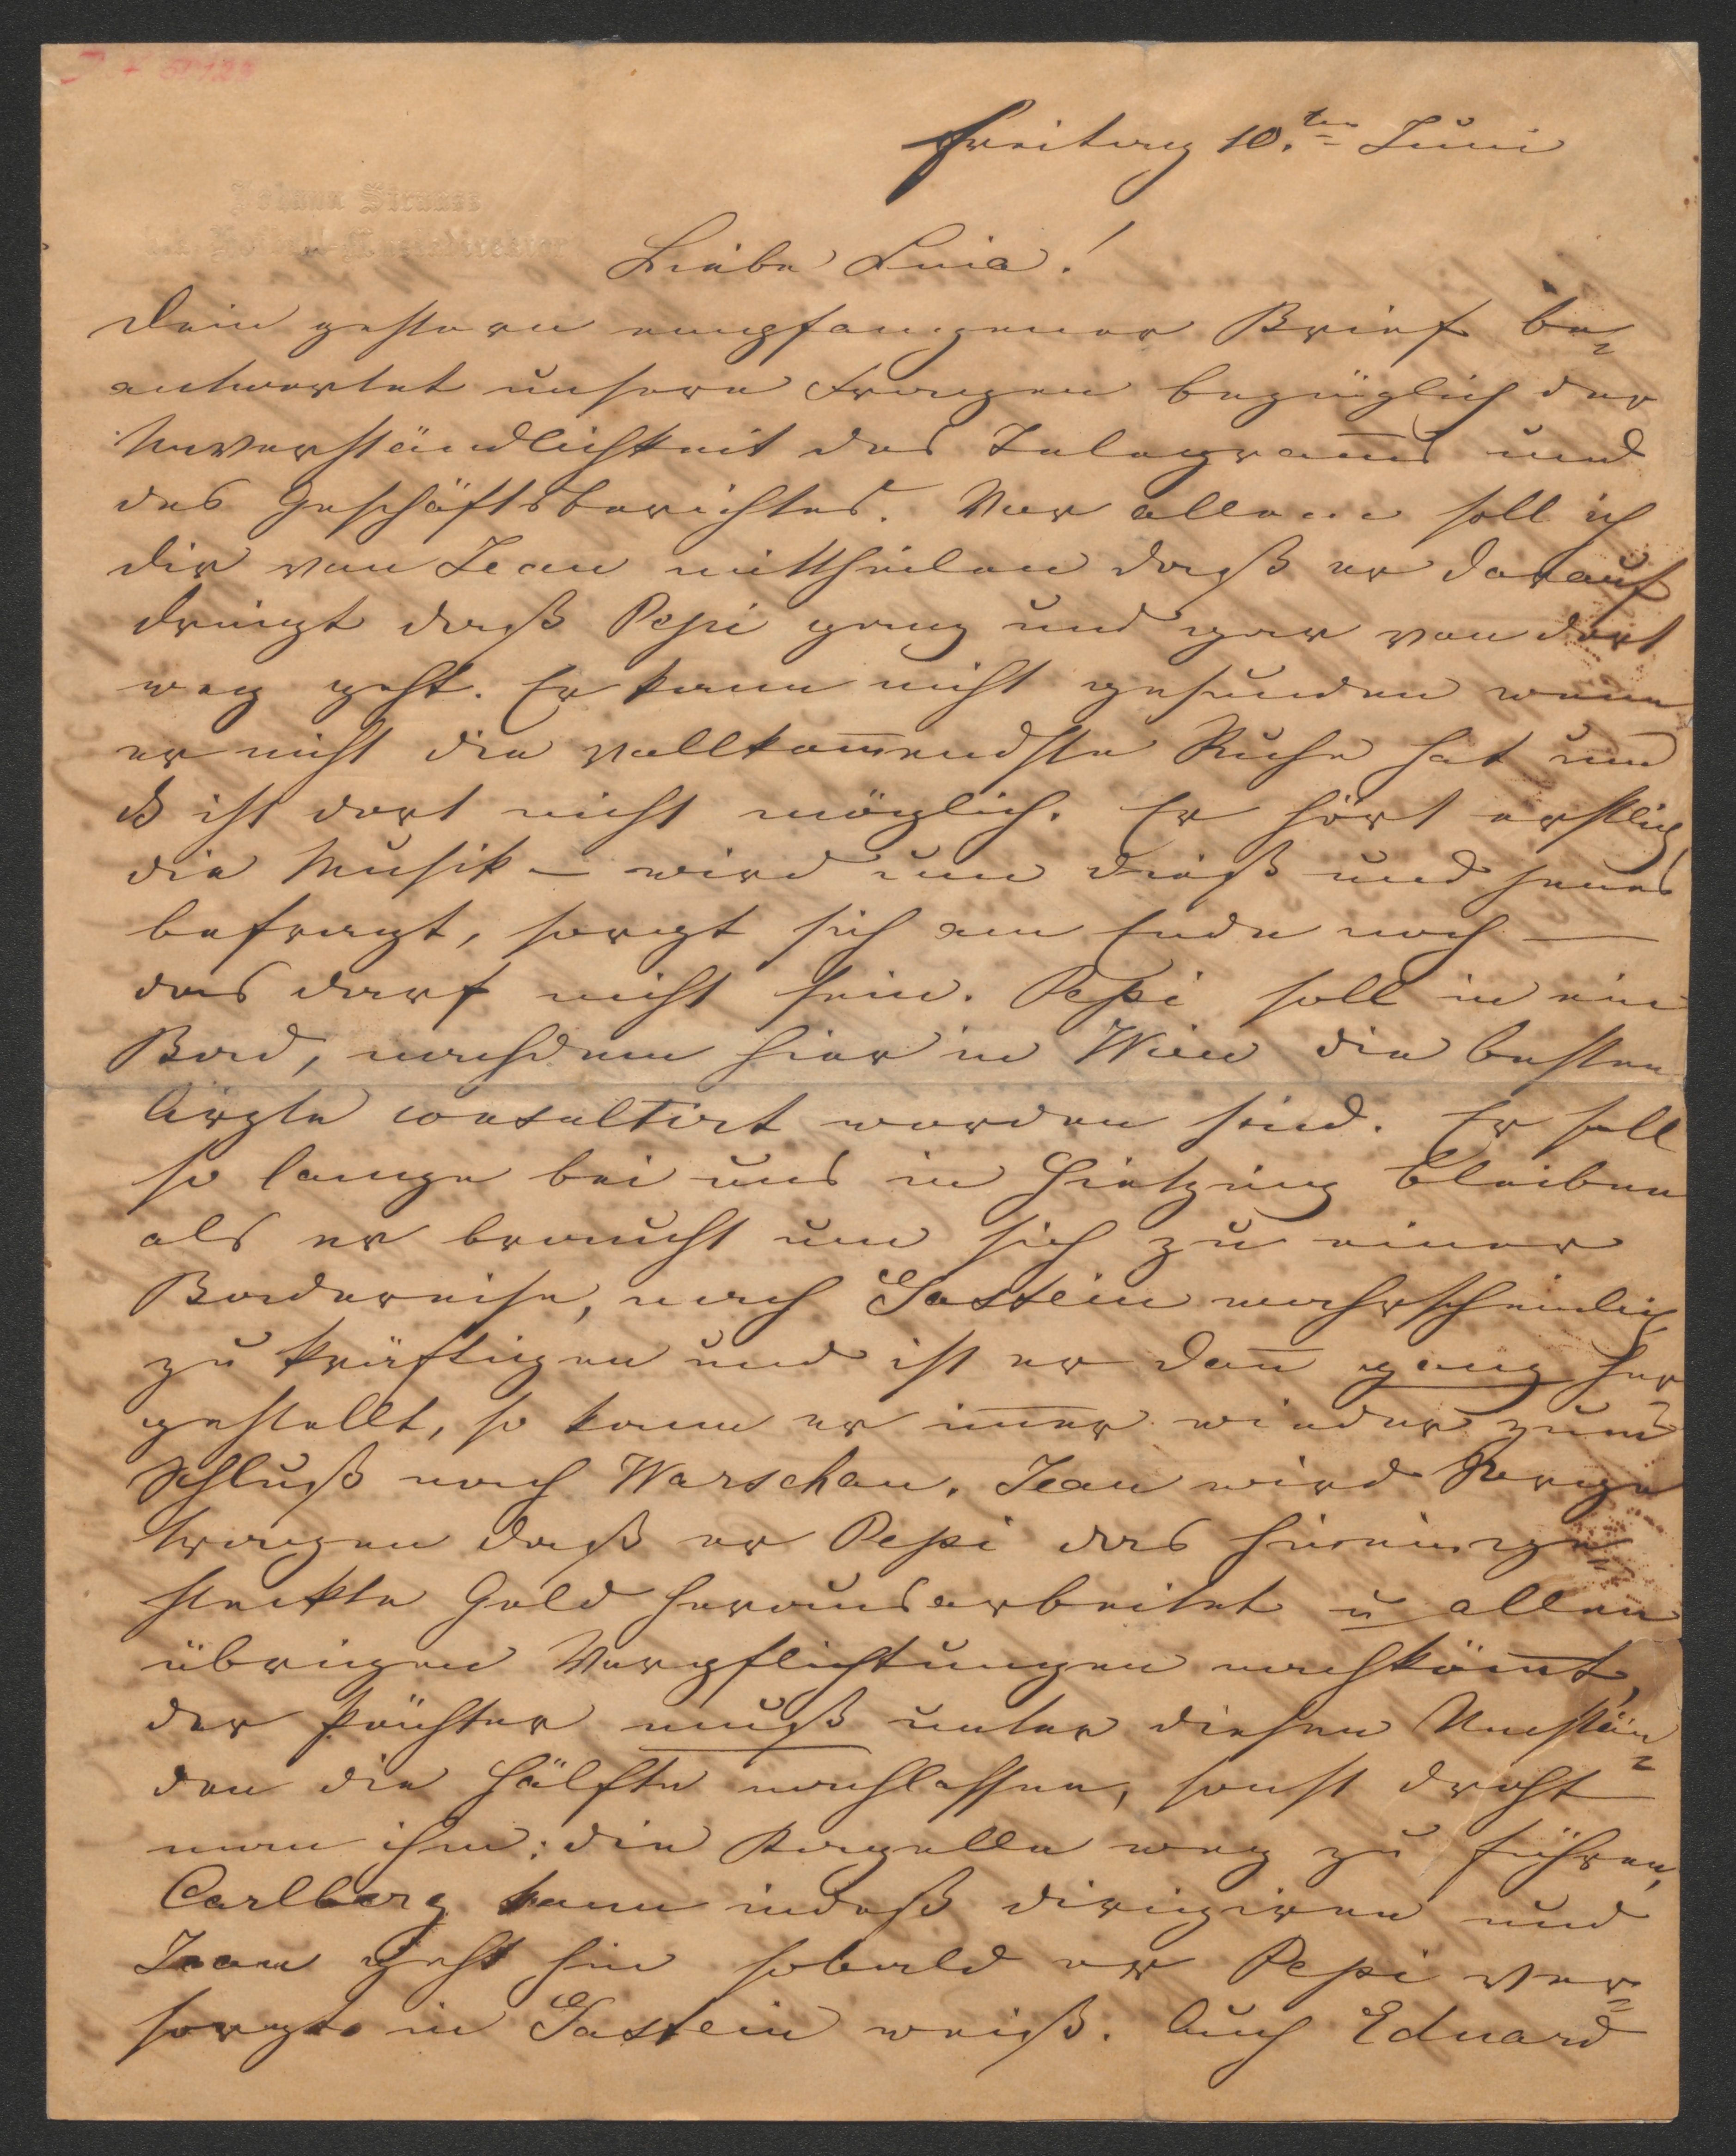 Johann Strauss
k.k. Hofball-Musikdirector
Freitag 10.ten Juni
Liebe Lina!
Dein gestern empfangener Brief be-
antwortet unsere Fragen bezüglich der
Unverständlichkeit des Telegram̅s und
des Geschäftsberichtes. Vor allem soll ich
dir von Jean mittheilen daß er darauf
dringt daß Pepi ganz und gar von dort
weg geht. Er kann nicht gesunden wenn
er nicht die vollkom̅endste Ruhe hat und
es ist dort nicht möglich. Er hört erstlich
die Musik – wird um dieß und jenes
befragt, sorgt sich am Ende noch —
das darf nicht sein. Pepi soll in ein
Bad, nachdem hier in Wien die besten
Ärzte consultirt worden sind. Er soll
so lange bei uns in Hietzing bleiben
als er braucht um sich zu einer
Badereise, nach Gastein wahrscheinlich
zu kräftigen und ist er dan̅ ganz her
gestellt, so kann er im̅er wieder zum
Schluß nach Warschau. Jean wird Sorge
tragen daß er Pepi das hineinge-
steckte Geld herausarbeitet u allen
übrigen Verpflichtungen nachköm̅t,
der Pächter muß unter diesen Umstän-
den die Hälfte nachlassen, sonst droht
man ihm: die Kapelle weg zu führen,
Carlberg kann indeß dirigiren und
Jean geht hin sobald er Pepi ver-
sorgt in Gastein weiß. Auch Eduard